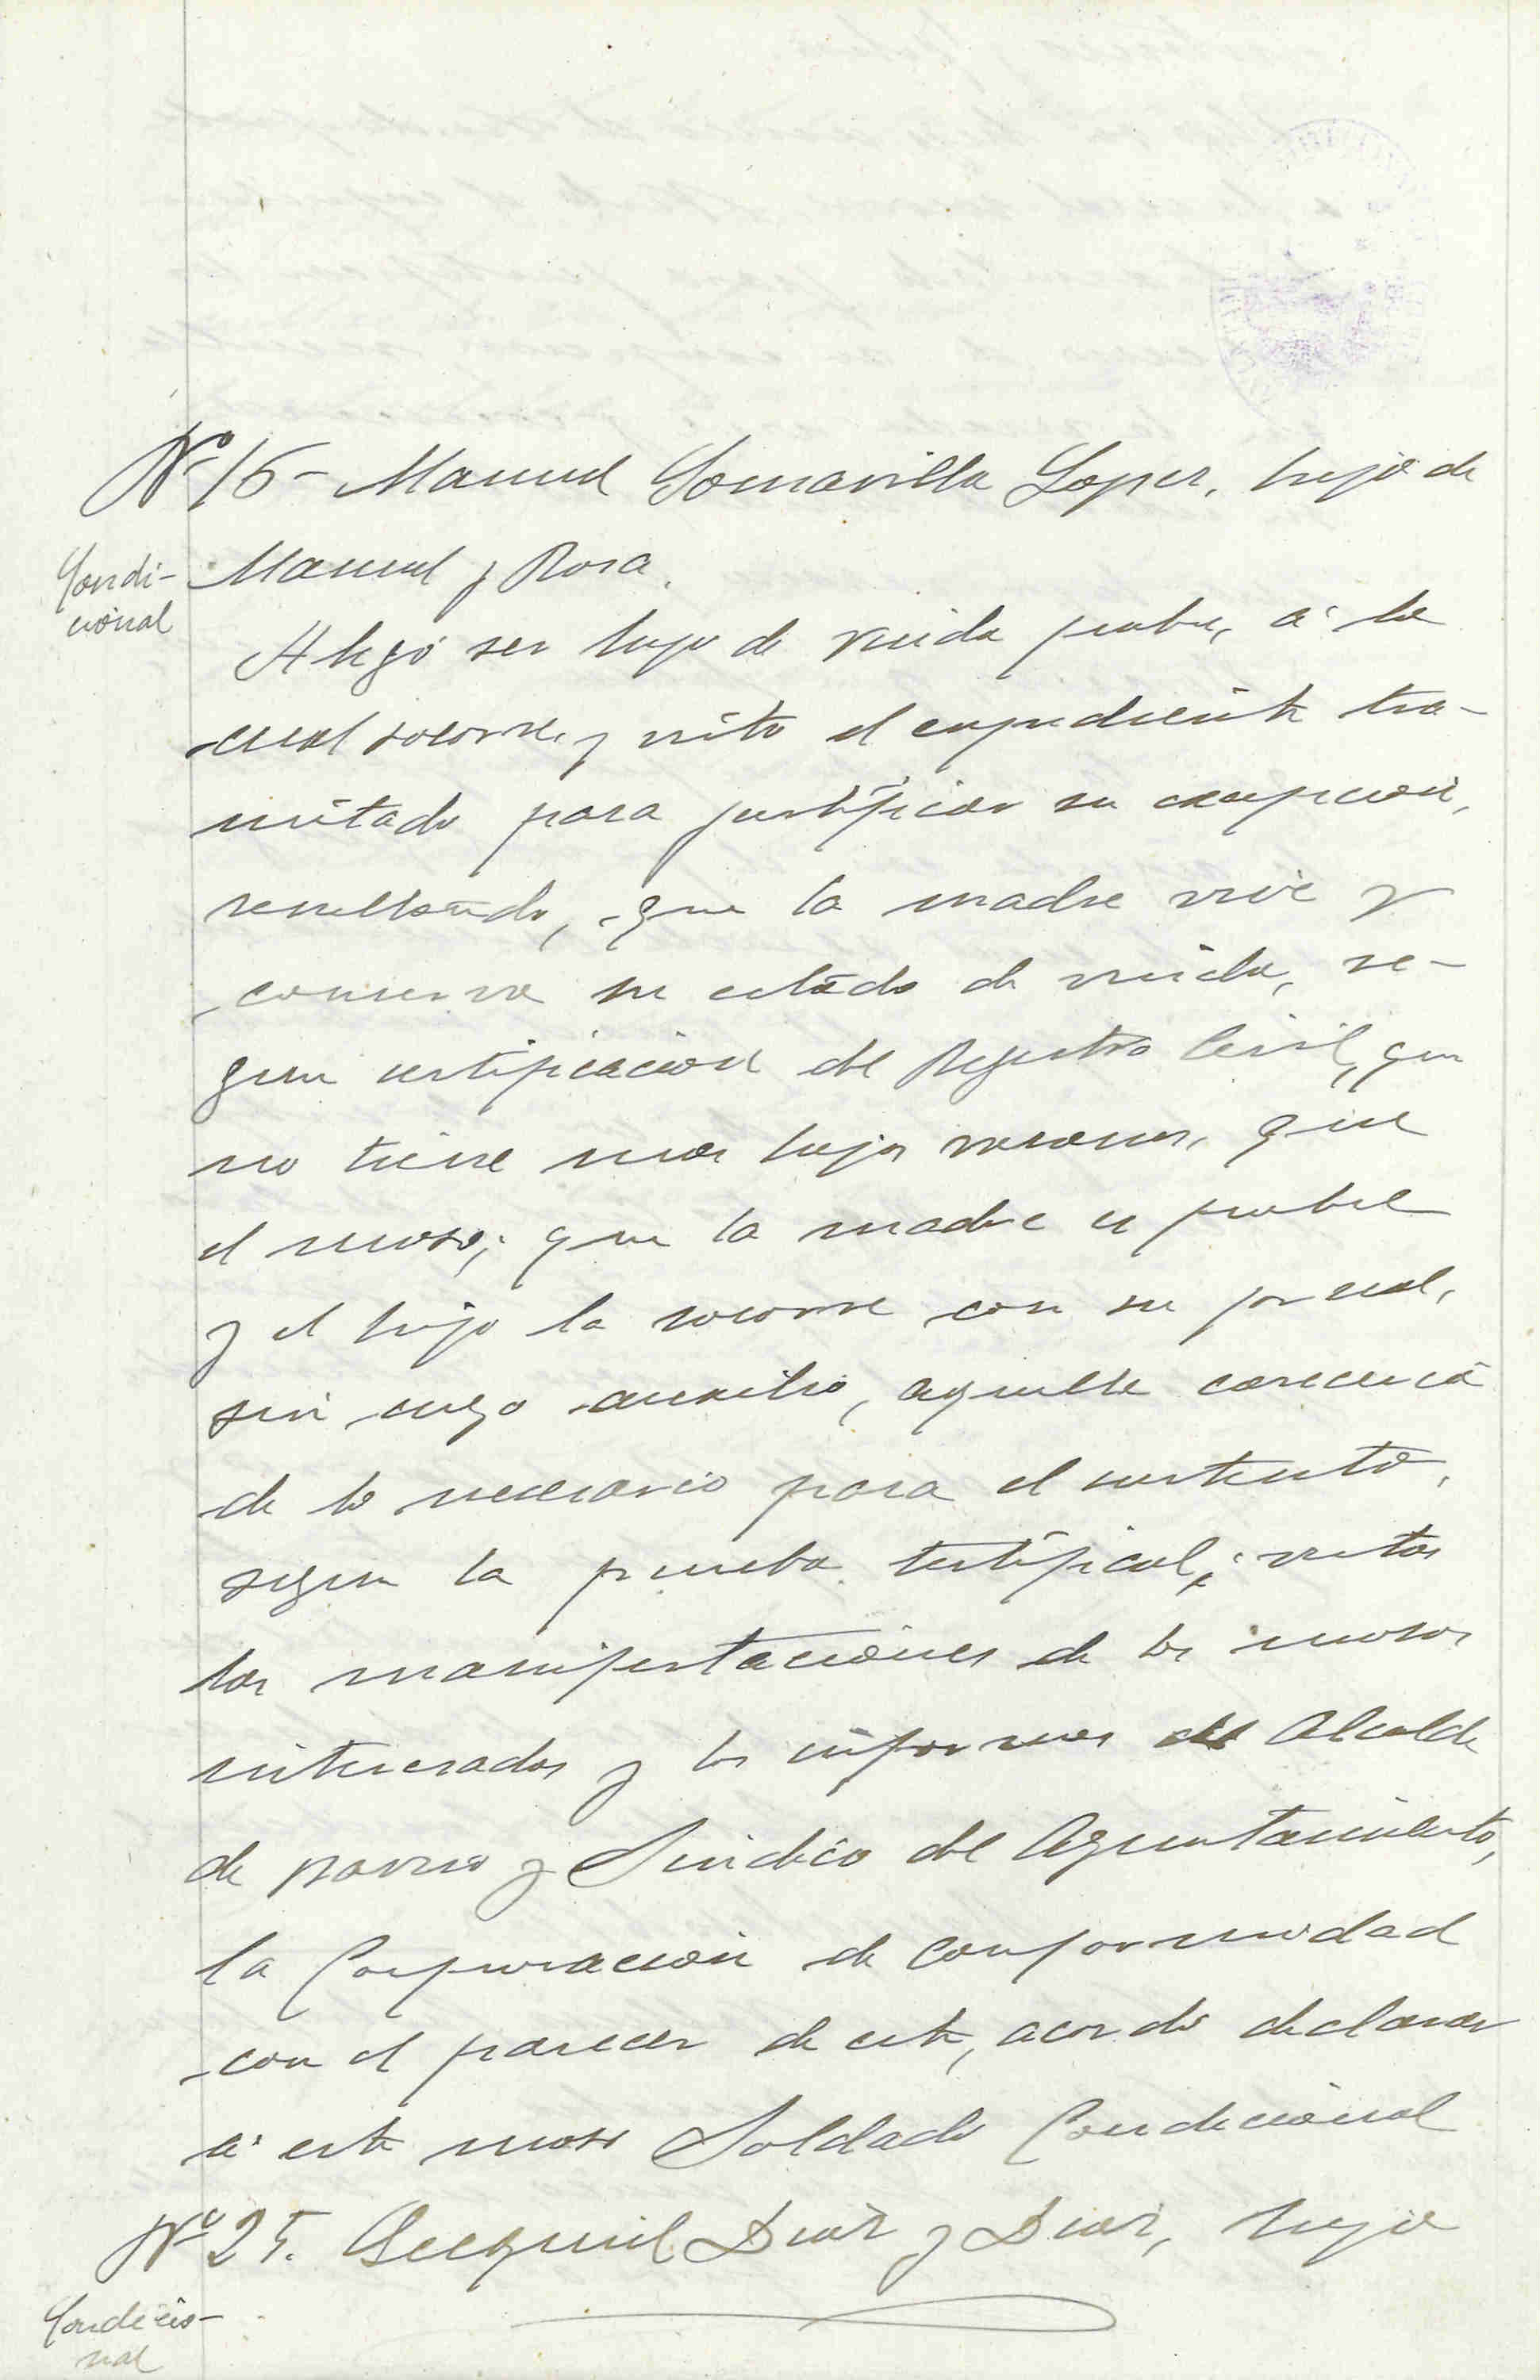 Nº 16 - Manuel Somavilla Lopez, hijo de
Condi-
cional
Manuel y Rosa.
Alegó ser hijo de viuda pobre, á la
cual socorre, y visto el expediente tra-
mitado para justificar su excepcion,
resultando, que la madre vive y
conserva su estado de viuda, se-
gun certificacion del Registro Civil, que
no tiene mas hijos varones, que
el mozo; que la madre es pobre
y el hijo la socorre con su jornal,
sin cuyo auxilio, aquella careceria
de lo necesario para el sustento,
segun la prueba testifical; vistas
las manifestaciones de los mozos
interesados y los informes del Alcalde
de barrio y Sindico del Ayuntamiento,
la Corporacion de conformidad
con el parecer de este, acordó declarar
a este mozo Soldado Condicional
Nº 25. Diaz y Diaz, hijo
Condicio-
nal